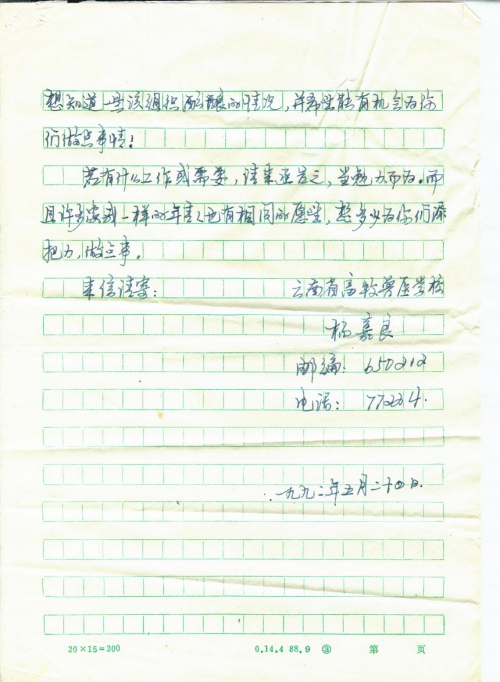 想知道一些该组织酝酿的情况，并希望能有机会为你
们做点事情！
若有什么工作或需要，请来函告之，当尽力而为。而
且许多象我一样的年青人也有相同的愿望，想多少为你们添
把力，做点事。
来信请寄：云南省畜牧兽医学校
杨嘉良
邮编：650212
电话：77224.
一九九二年五月二十四日.
20×15=300 0.14.4 88.9 ③ 第 页